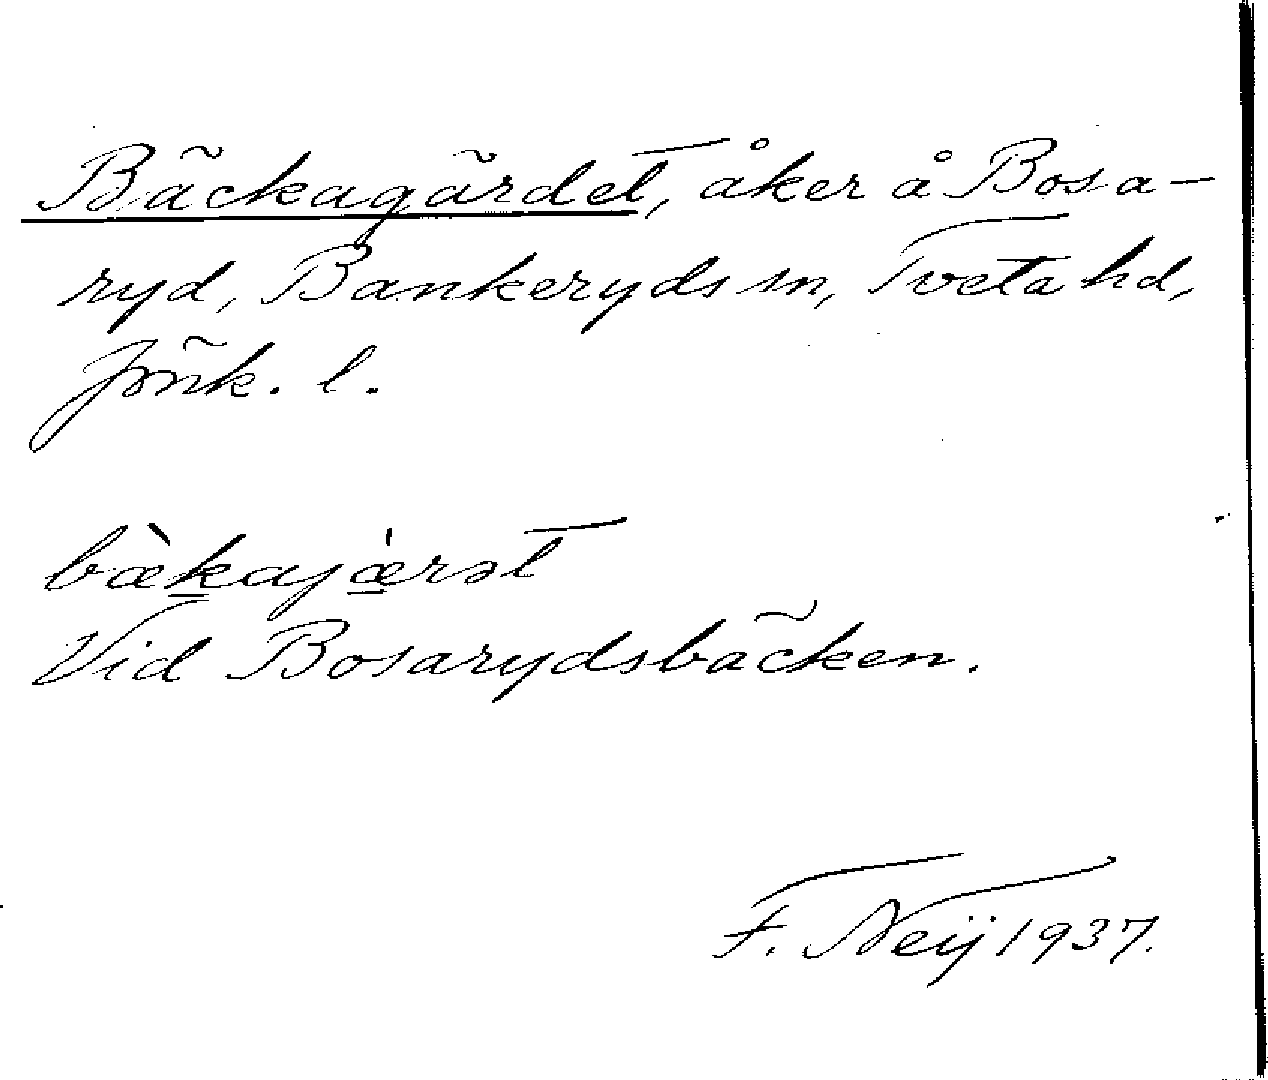 Bäckagärdet, åker å Bosa-
ryd, Bankeryds sn, Tveta hd,
Jönk. l.
bæ̀ka̱jæ̀rət
Vid Bosarydsbäcken.
F. Neij 1937.